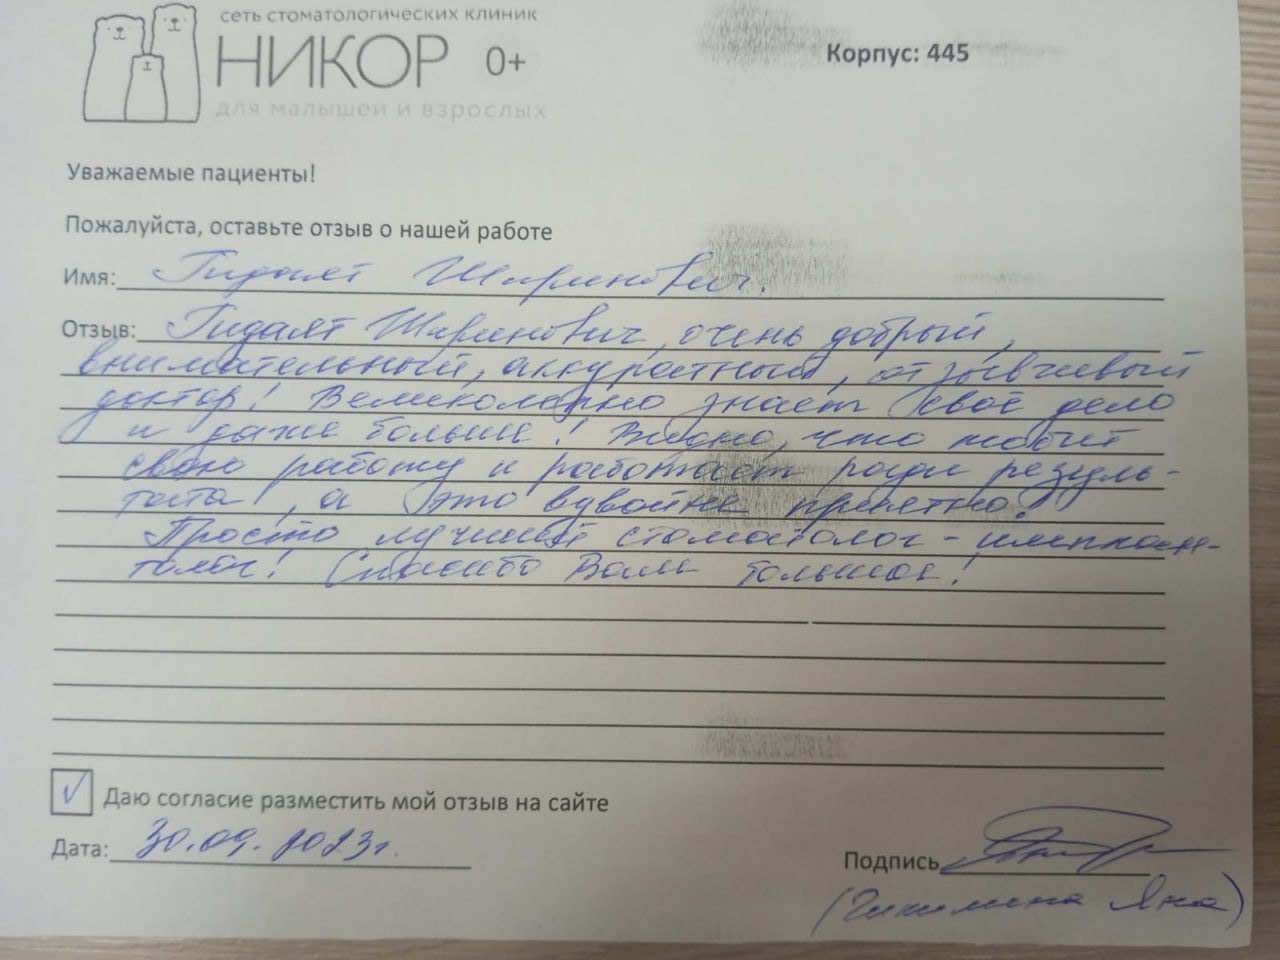 сеть стоматологических клиник
НИКОР 0+
для малышей и взрослых
Корпус: 445
Уважаемые пациенты!
Пожалуйста, оставьте отзыв о нашей работе
Имя: Гидаят Ширинович.
Отзыв: Гидаят Ширинович, очень добрый,
внимательный, аккуратный, отзывчивый
доктор! Великолепно знает своё дело
и даже больше! Видно, что любит
свою работу и работает ради резуль-
тата, а это вдвойне приятно!
Просто лучший стоматолог-имплан-
толог! Спасибо Вам большое!
Даю согласие разместить мой отзыв на сайте
Дата: 30.09.2023г.
Подпись
Яна)